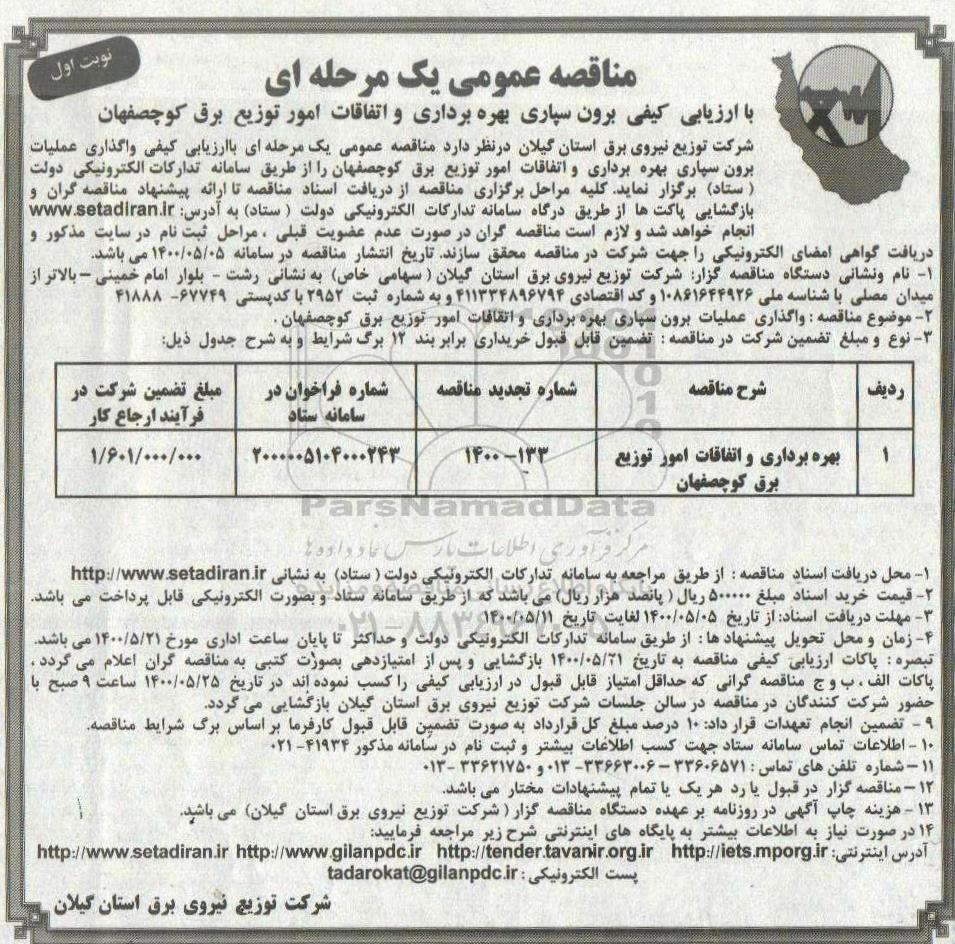 نوبت اول
مناقصه عمومی یک مرحله ای
با ارزیابی کیفی برون سپاری بهره برداری و اتفاقات امور توزیع برق کوچصفهان
شرکت توزیع نیروی برق استان گیلان درنظر دارد مناقصه عمومی یک مرحله ای باارزیابی کیفی واگذاری عملیات
برون سپاری بهره برداری و اتفاقات امور توزیع برق کوچصفهان را از طریق سامانه تدارکات الکترونیکی دولت
( ستاد) برگزار نماید. کلیه مراحل برگزاری مناقصه از دریافت اسناد مناقصه تا ارائه پیشنهاد مناقصه گران و
بازگشایی پاکت ها از طریق درگاه سامانه تدارکات الکترونیکی دولت ( ستاد) به آدرس: www.setadiran.ir
انجام خواهد شد و لازم است مناقصه گران در صورت عدم عضویت قبلی ، مراحل ثبت نام در سایت مذکور و
دریافت گواهی امضای الکترونیکی را جهت شرکت در مناقصه محقق سازند. تاریخ انتشار مناقصه در سامانه ۱۴۰۰/۰۵/۰۵ می باشد.
۱- نام ونشانی دستگاه مناقصه گزار: شرکت توزیع نیروی برق استان گیلان ( سهامی خاص) به نشانی رشت - بلوار امام خمینی – بالاتر از
میدان مصلی با شناسه ملی ۱۰۸۶۱۶۴۴۹۲۶ و کد اقتصادی ۴۱۱۳۳۴۸۹۶۷۹۴ و به شماره ثبت ۲۹۵۲ با کدپستی ۶۷۷۴۹- ۴۱۸۸۸
۲- موضوع مناقصه : واگذاری عملیات برون سپاری بهره برداری و اتفاقات امور توزیع برق کوچصفهان .
۳- نوع و مبلغ تضمین شرکت در مناقصه : تضمین قابل قبول خریداری برابر بند ۱۲ برگ شرایط و به شرح جدول ذیل:
ردیف شرح مناقصه شماره تجدید مناقصه شماره فراخوان در سامانه ستاد مبلغ تضمین شرکت در فرآیند ارجاع کار
۱ بهره برداری و اتفاقات امور توزیع برق کوچصفهان ۱۳۳-۱۴۰۰ ۲۰۰۰۰۰۵۱۰۴۰۰۰۲۴۳ ۱/۶۰۱/۰۰۰/۰۰۰
ParsNamadData
مرکز فرآوری اطلاعات پارس نماد داده ها
۱- محل دریافت اسناد مناقصه : از طریق مراجعه به سامانه تدارکات الکترونیکی دولت ( ستاد) به نشانی http://www.setadiran.ir
۲- قیمت خرید اسناد مبلغ ۵۰۰۰۰۰ ریال ( پانصد هزار ریال) می باشد که از طریق سامانه ستاد و بصورت الکترونیکی قابل پرداخت می باشد.
۳- مهلت دریافت اسناد: از تاریخ ۱۴۰۰/۰۵/۰۵ لغایت تاریخ ۱۴۰۰/۰۵/۱۱
۴- زمان و محل تحویل پیشنهاد ها : از طریق سامانه تدارکات الکترونیکی دولت و حداکثر تا پایان ساعت اداری مورخ ۱۴۰۰/۵/۲۱ می باشد.
تبصره : پاکات ارزیابی کیفی مناقصه به تاریخ ۱۴۰۰/۰۵/۲۱ بازگشایی و پس از امتیازدهی بصورت کتبی به مناقصه گران اعلام می گردد ،
پاکات الف ، ب و ج مناقصه گرانی که حداقل امتیاز قابل قبول در ارزیابی کیفی را کسب نموده اند در تاریخ ۱۴۰۰/۰۵/۲۵ ساعت ۹ صبح با
حضور شرکت کنندگان در مناقصه در سالن جلسات شرکت توزیع نیروی برق استان گیلان بازگشایی می گردد.
۹ - تضمین انجام تعهدات قرار داد: ۱۰ درصد مبلغ کل قرارداد به صورت تضمین قابل قبول کارفرما بر اساس برگ شرایط مناقصه.
۱۰ - اطلاعات تماس سامانه ستاد جهت کسب اطلاعات بیشتر و ثبت نام در سامانه مذکور ۴۱۹۳۴- ۰۲۱
۱۱ – شماره تلفن های تماس : ۳۳۶۰۶۵۷۱ – ۳۳۶۶۳۰۰۶- ۰۱۳ و ۳۳۶۲۱۷۵۰ -۰۱۳
۱۲ – مناقصه گزار در قبول یا رد هر یک یا تمام پیشنهادات مختار می باشد.
۱۳ - هزینه چاپ آگهی در روزنامه بر عهده دستگاه مناقصه گزار ( شرکت توزیع نیروی برق استان گیلان) می باشد.
۱۴ در صورت نیاز به اطلاعات بیشتر به پایگاه های اینترنتی شرح زیر مراجعه فرمایید:
آدرس اینترنتی: http://www.setadiran.ir http://www.gilanpdc.ir http://tender.tavanir.org.ir http://iets.mporg.ir
پست الکترونیکی : tadarokat@gilanpdc.ir
شرکت توزیع نیروی برق استان گیلان